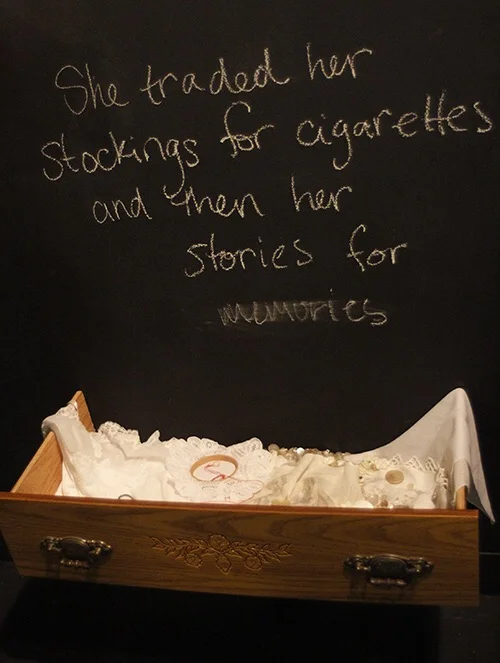 She traded her
stockings for cigarettes
and then her
stories for
memories